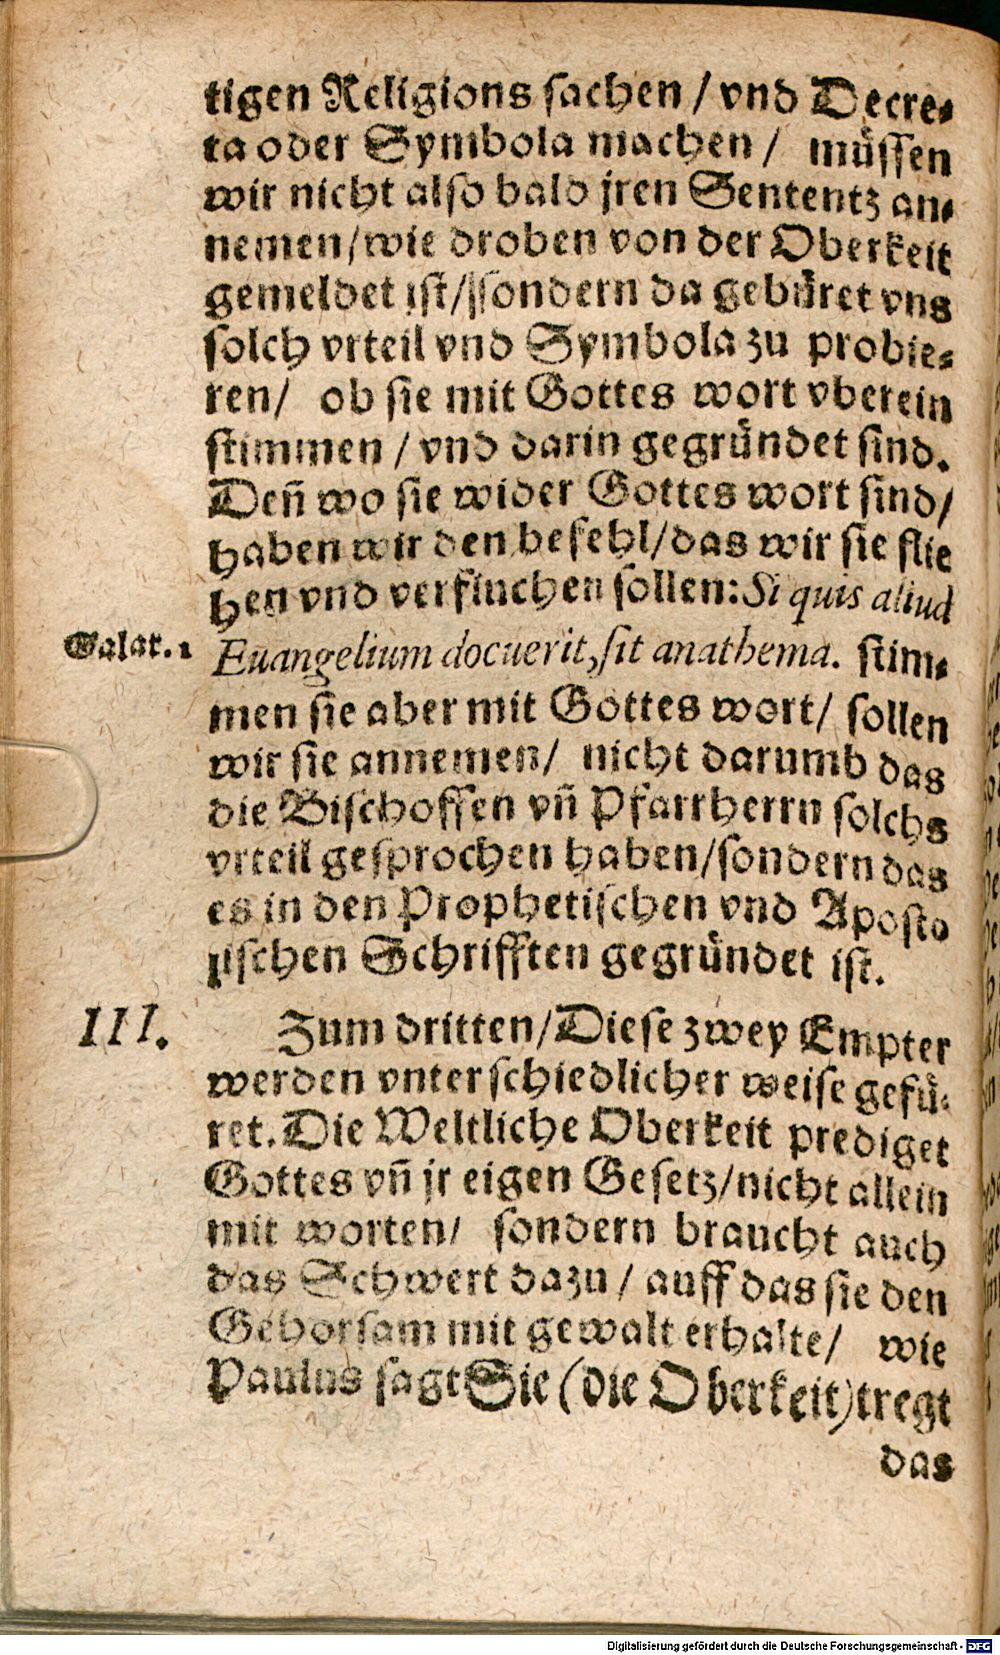 tigen Religions sachen / vnd Decre⸗
ta oder Symbola machen / müssen
wir nicht also bald jren Sententz an⸗
nemen/wie droben von der Oberkeit
gemeldet ist/sondern da gebüret vns
solch vrteil vnd Symbola zu probie⸗
ren/ ob sie mit Gottes wort vberein
stimmen / vnd darin gegründet sind.
Den̄ wo sie wider Gottes wort sind/
haben wir den befehl/das wir sie flie
hen vnd verfluchen sollen: Si quis aliud
Galat. 1 Euangelium docuerit, sit anathema. stim⸗
men sie aber mit Gottes wort/ sollen
wir sie annemen/ nicht darumb das
die Bischoffen vn̄ Pfarrherrn solchs
vrteil gesprochen haben/sondern das
es in den Prophetischen vnd Aposto
lischen Schrifften gegründet ist.
III. Zum dritten/Diese zwey Empter
werden vnterschiedlicher weise gefü⸗
ret. Die Weltliche Oberkeit prediget
Gottes vn̄ jr eigen Gesetz/nicht allein
mit worten/ sondern braucht auch
das Schwert dazu / auff das sie den
Gehorsam mit gewalt erhalte/ wie
Paulus sagt Sie (die Oberkeit) tregt
das
Digitalisierung gefördert durch die Deutsche Forschungsgemeinschaft - DFG